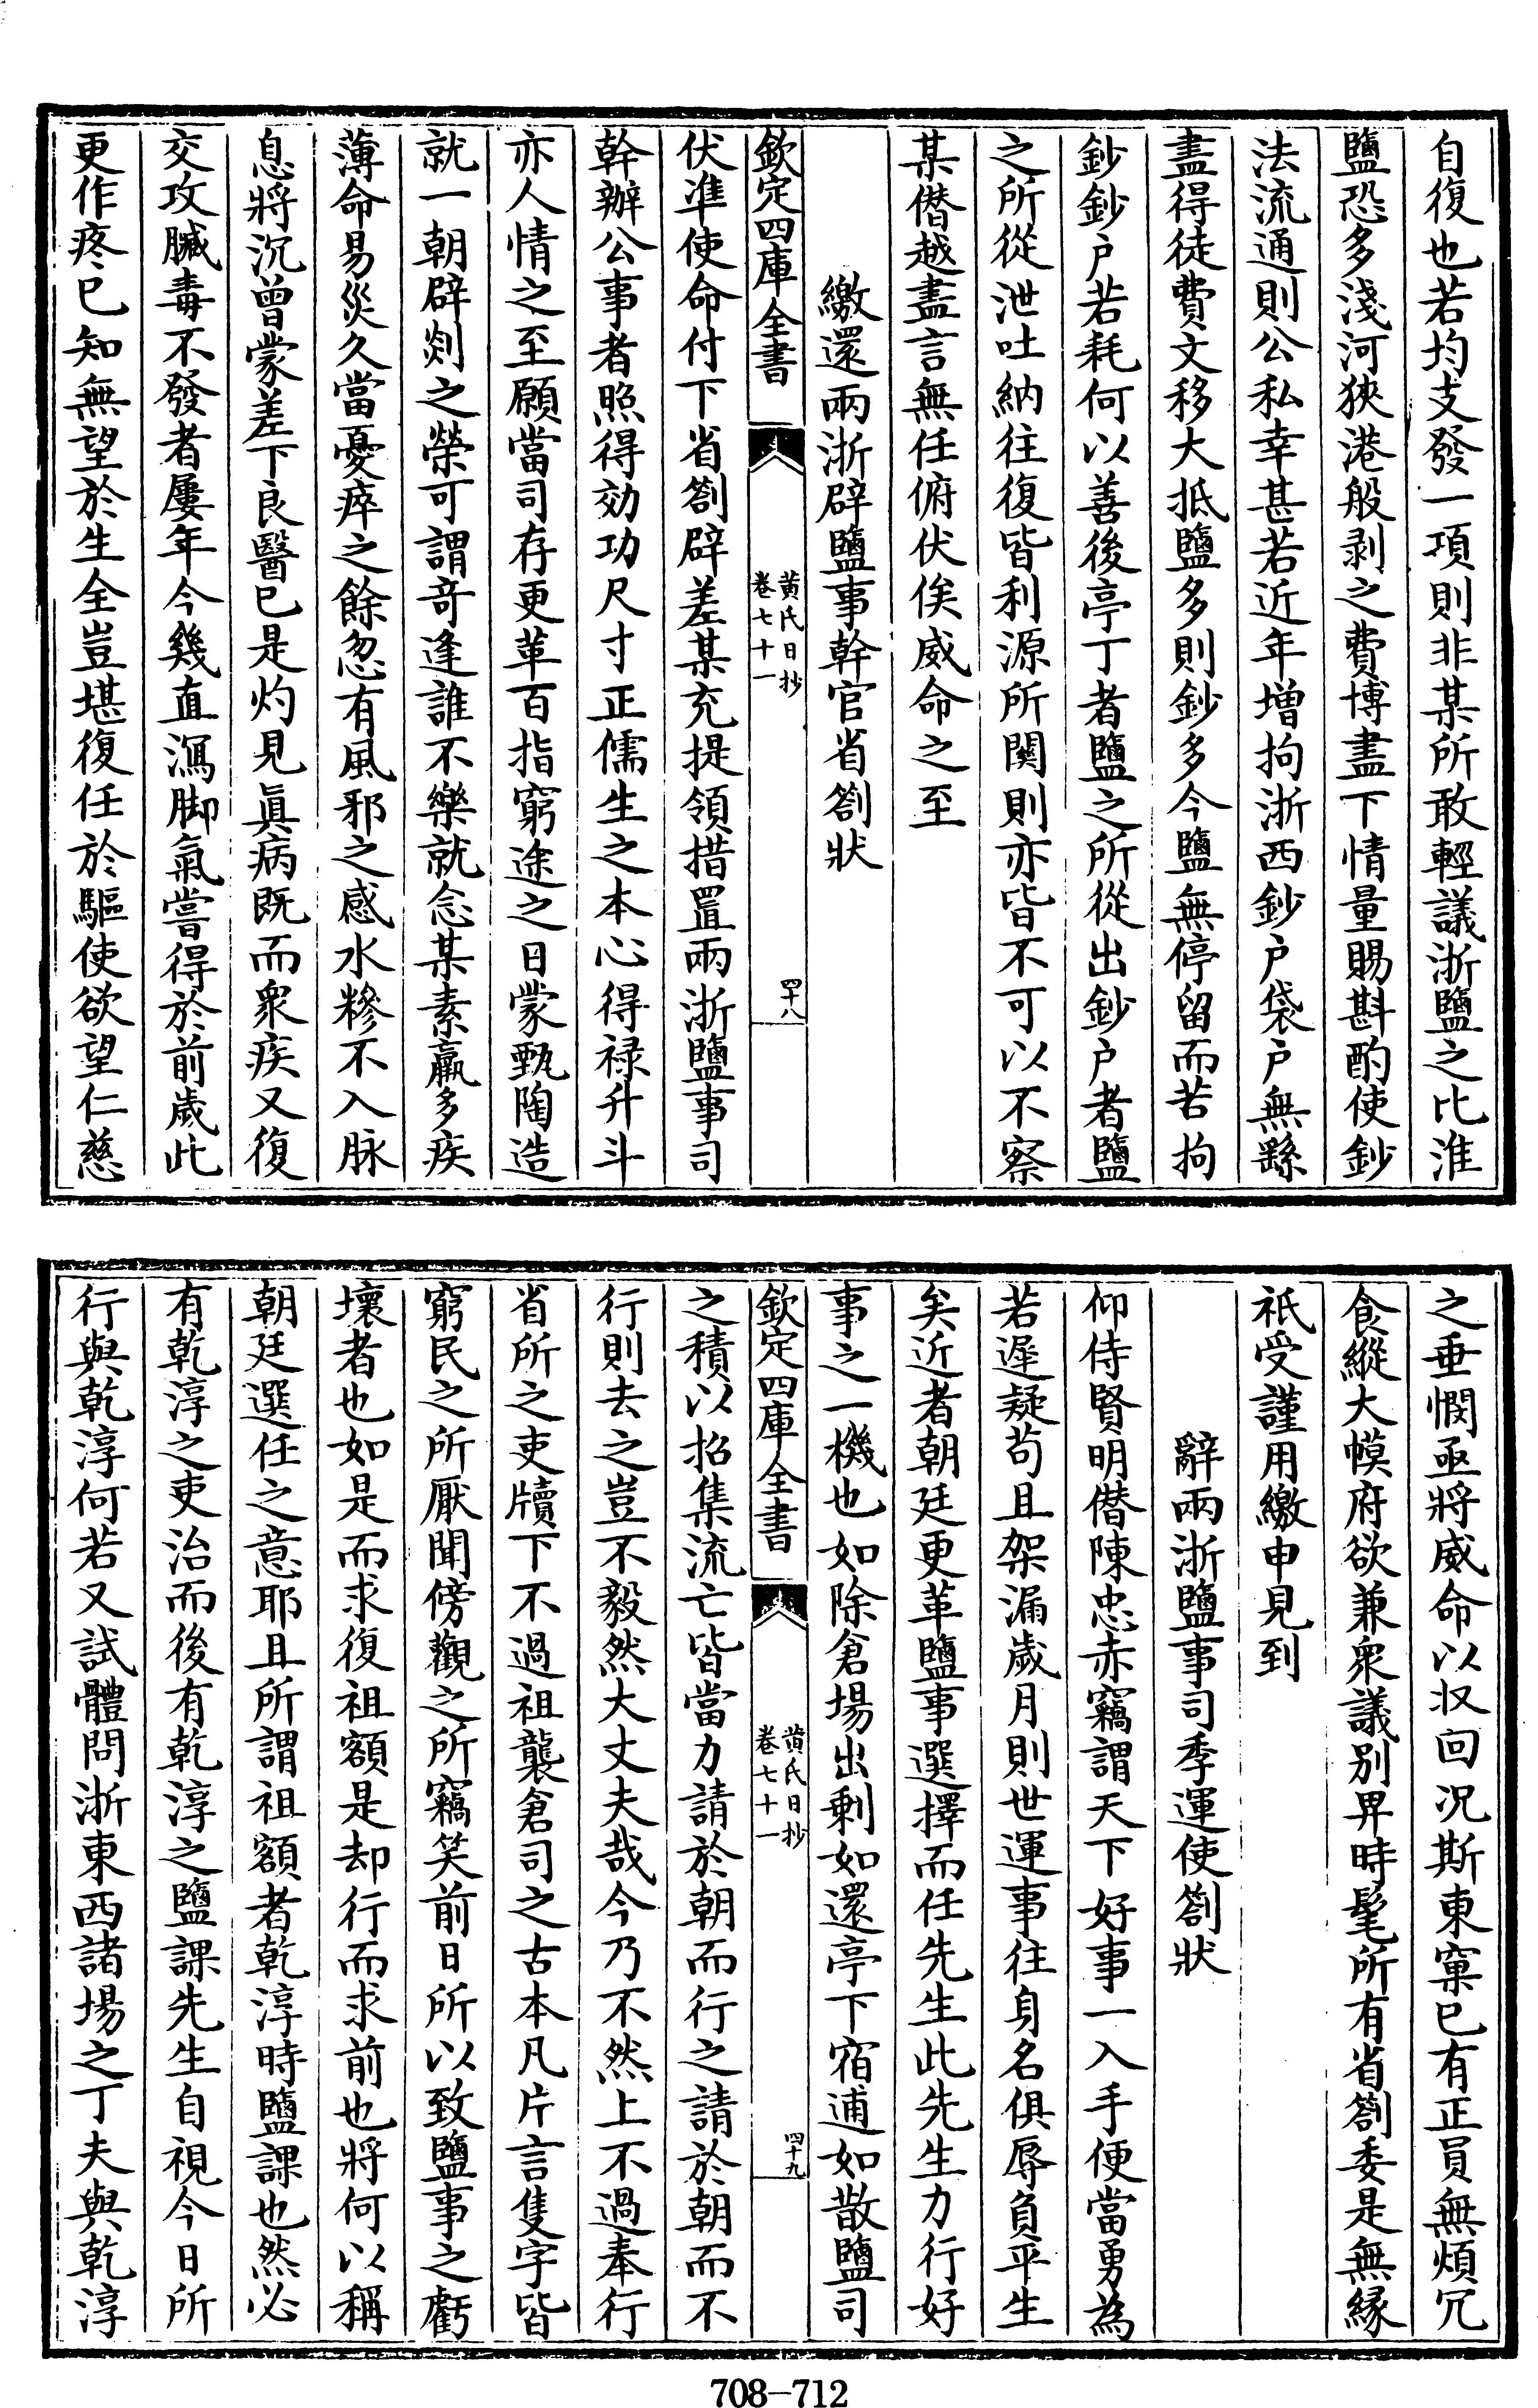 自復也若均支發一項則非某所敢輕議浙鹽之比淮
鹽恐多淺河狹港般剥之費博盡下情量賜斟酌使鈔
法流通則公私幸甚若近年增拘浙西鈔户袋户無繇
盡得徒費文移大抵鹽多則鈔多今鹽無停留而若拘
鈔鈔户若耗何以善後亭丁者鹽之所從出鈔户者鹽
之所從泄吐納往復皆利源所關則亦皆不可以不察
某僭越盡言無任俯伏俟威命之至
繳還兩浙辟鹽事幹官省劄狀
欽定四庫全書
黄氏日抄
卷七十一
四十八
伏準使命付下省劄辟差某充提領措置兩浙鹽事司
幹辦公事者照得効功尺寸正儒生之本心得禄升斗
亦人情之至願當司存更革百指窮途之日蒙甄陶造
就一朝辟剡之榮可謂奇逢誰不樂就念某素羸多疾
薄命易災久當憂瘁之餘忽有風邪之感水糝不入脉
息將沉曾蒙差下良醫已是灼見真病既而衆疾又復
交攻臟毒不發者屢年今幾直瀉脚氣嘗得於前歲此
更作疼已知無望於生全豈堪復任於驅使欲望仁慈
之垂憫亟將威命以収回况斯東窠已有正員無煩冗
食縱大幙府欲兼衆議别畀時髦所有省劄委是無緣
祇受謹用繳申見到
辭兩浙鹽事司季運使劄狀
仰侍賢明僭陳忠赤竊謂天下好事一入手便當勇為
若遲疑苟且架漏歲月則世運事往身名俱辱負平生
矣近者朝廷更革鹽事選擇而任先生此先生力行好
事之一機也如除倉場出剰如還亭下宿逋如散鹽司
欽定四庫全書
黄氏日抄
卷七十一
四十九
之積以招集流亡皆當力請於朝而行之請於朝而不
行則去之豈不毅然大丈夫哉今乃不然上不過奉行
省所之吏牘下不過祖襲倉司之古本凡片言隻字皆
窮民之所厭聞傍觀之所竊笑前日所以致鹽事之虧
壞者也如是而求復祖額是却行而求前也將何以稱
朝廷選任之意耶且所謂祖額者乾淳時鹽課也然必
有乾淳之吏治而後有乾淳之鹽課先生自視今日所
行與乾淳何若又試體問浙東西諸場之丁夫與乾淳
708-712